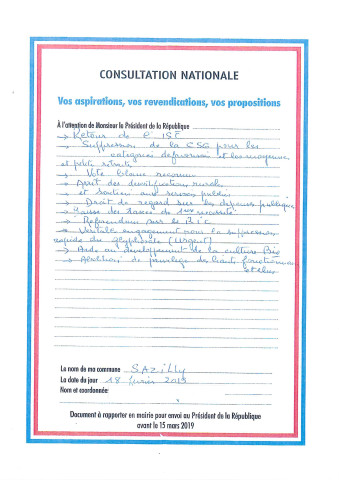 CONSULTATION NATIONALE
Vos aspirations, vos revendications, vos propositions
À l'attention de Monsieur le Président de la République
→ Retour de l'ISF
→ Suppression de la CSG pour les
catégories et les moyennes
et petite retraite
→ Vote blanc reconnu
→ Arrêt des rurale
et soutien aux services publics
→ Droit de regard sur les dépenses publiques
→ Baisse des taxes de 1ère nécessité
→ Referendum sur le R.i.c
→ Véritable engagement pour la suppression
rapide du glyphosate (urgent)
→ Aide au développement de la culture Bio
→ Abolition de privilège des hauts fonctionnaires
et élus
La nom de ma commune SAZilly
La date du jour 18 février 2019
Nom et coordonnée:
Document à rapporter en mairie pour envoi au Président de la République
avant le 15 mars 2019